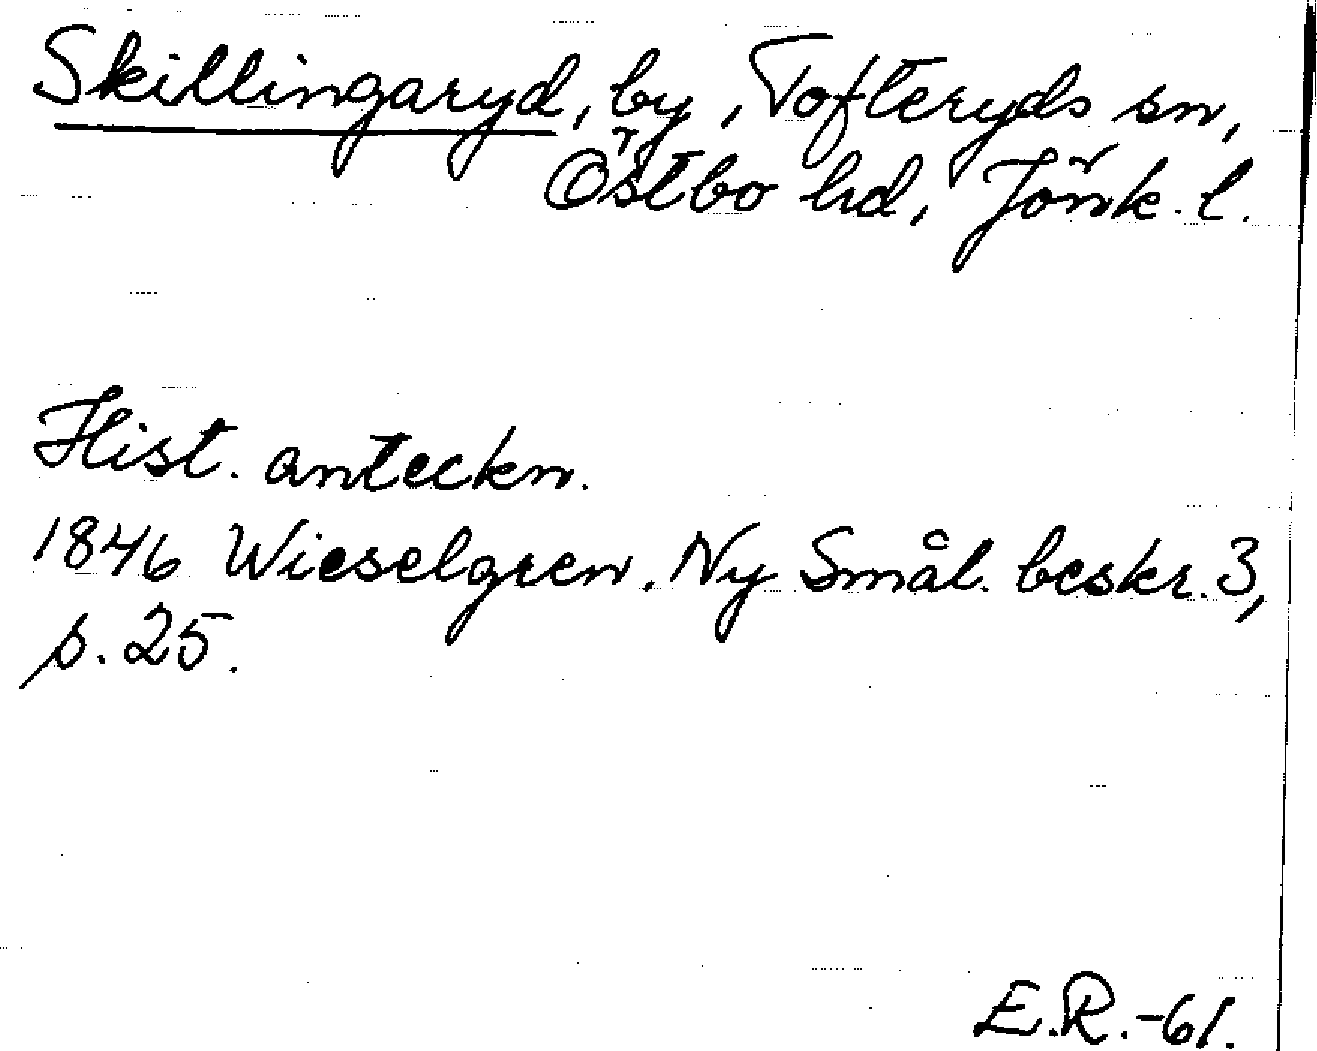 Skillingaryd, by, Tofteryds sn,
Östbo hd, Jönk. l.
Hist. anteckn.
1846 Wieselgren. Ny Smål. beskr. 3,
s. 25.
E.R.-61.